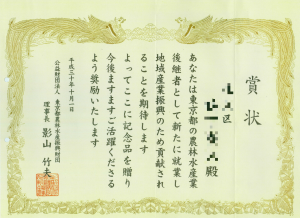 賞状
区
殿
あなたは東京都の農林水産業
後継者として新たに就業し
地域産業振興のため貢献され
ることを期待します
よってここに記念品を贈り
今後ますますご活躍くださる
よう奨励いたします
平成三十年十月一日
公益財団法人 東京都農林水産振興財団
理事長 影山竹夫